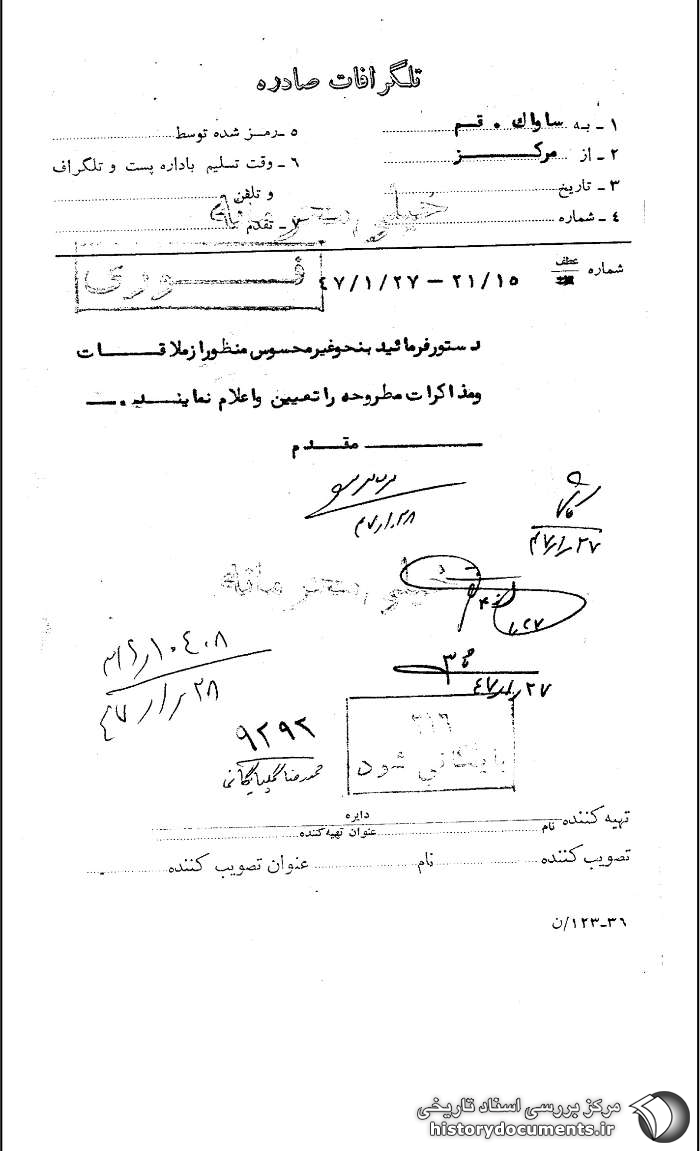 تلگرافات صادره
۱ - به ساواك . قم
۲ - از مركز
۳ - تاریخ
٤ - شماره
٥ - رمز شده توسط
٦ - وقت تسلیم باداره پست و تلگراف
و تلفن
۷ - تقدم
خیلی محرمانه
شماره عطف ۲۱/۱۵ - ٤۷/۱/۲۷
فوری
دستور فرمائید بنحو غیر محسوس منظور از ملاقات
و مذاكرات مطروحه را تعیین و اعلام نمایند . —
مقدم
۴۷/۱/۲۸
۴۷/۱/۲۷
۴۷/۱/۲۷
۲۸/۱/۴۷
۹۲۹۲
محمدرضا گلپایگانی
۳۱۶
بایگانی شود
تهیه کننده نام دایره
عنوان تهیه کننده
تصویب کننده نام عنوان تصویب کننده
۳٦-۱۲۳/ن
مرکز بررسی اسناد تاریخی
historydocuments.ir